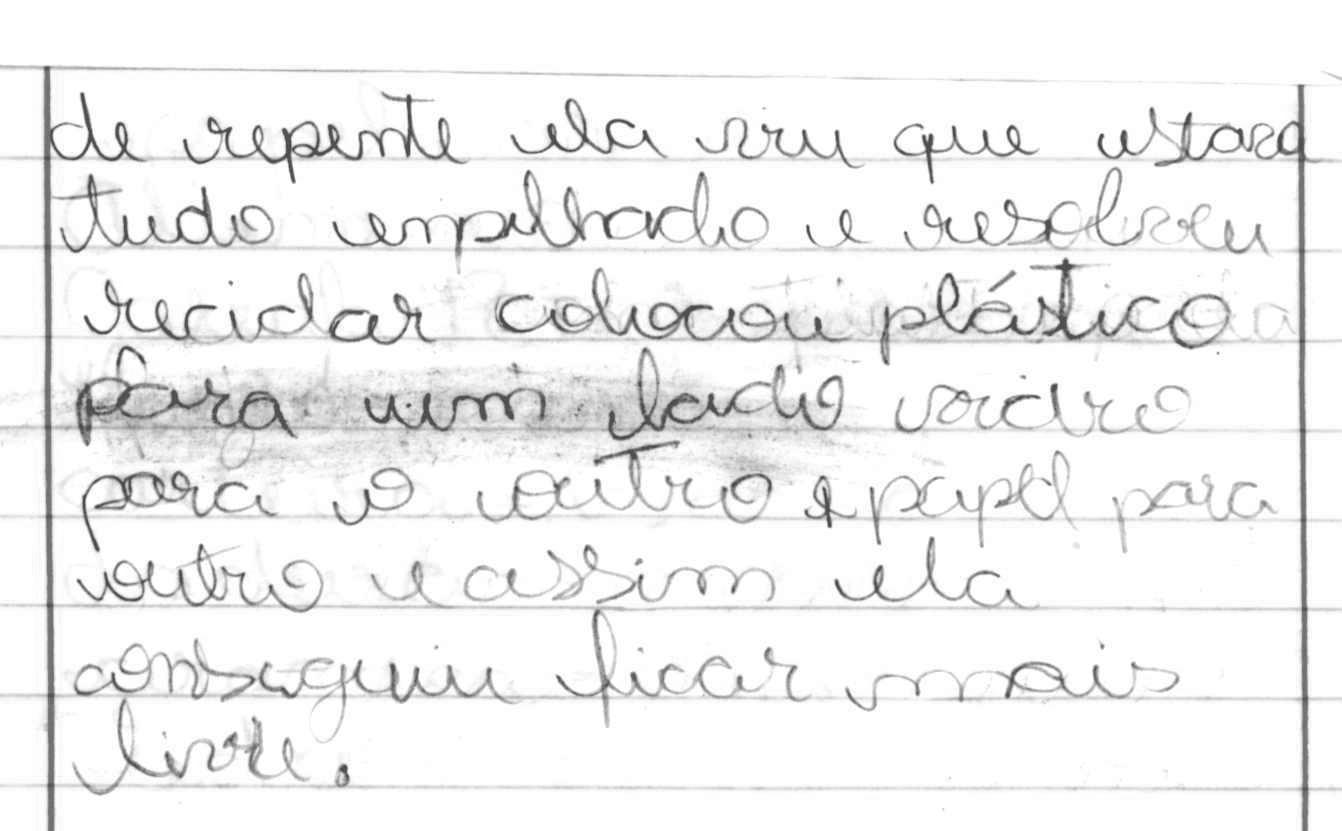 de repente ela viu que estava
tudo empilhado e resolveu
reciclar colocou plástico
para um lado vidro
para o outro e papel para
outro e assim ela
conseguiu ficar mais
livre.